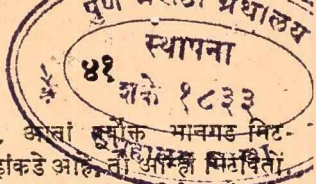 पुणे मराठी ग्रंथालय
स्थापना
४१
शके १८३३
आतां पूर्वोक्त भानगड मिट-
आहे, तो आम्ही मिटवितों.